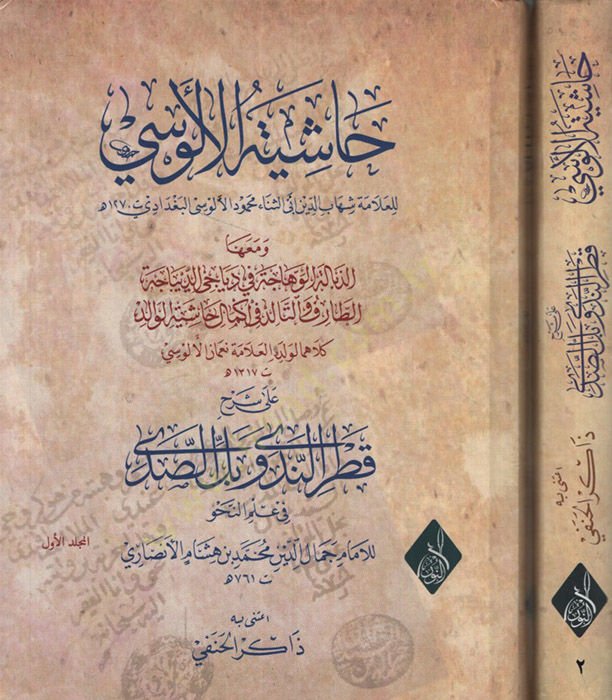 حاشية الألوسي
للعلامة شهاب الدين أبي الثناء محمود الألوسي البغدادي ت ١٢٧٠ه
ومعها
الذبالة الوهاجة في دياجي الديباجة
الطارف والتالد في إكمال حاشية الوالد
كلاهما لولده العلامة نعمان الألوسي
ت ١٣١٧ه
على شرح
قطر الندى وبل الصدى
في علم النحو
للإمام جمال الدين محمد بن هشام الأنصاري
ت ٧٦١ه
المجلد الأول
اعتنى به
ذاكر الحنفي
حاشية الألوسي
على شرح
قطر الندى وبل الصدى
اعتنى به
ذاكر الحنفي
٢